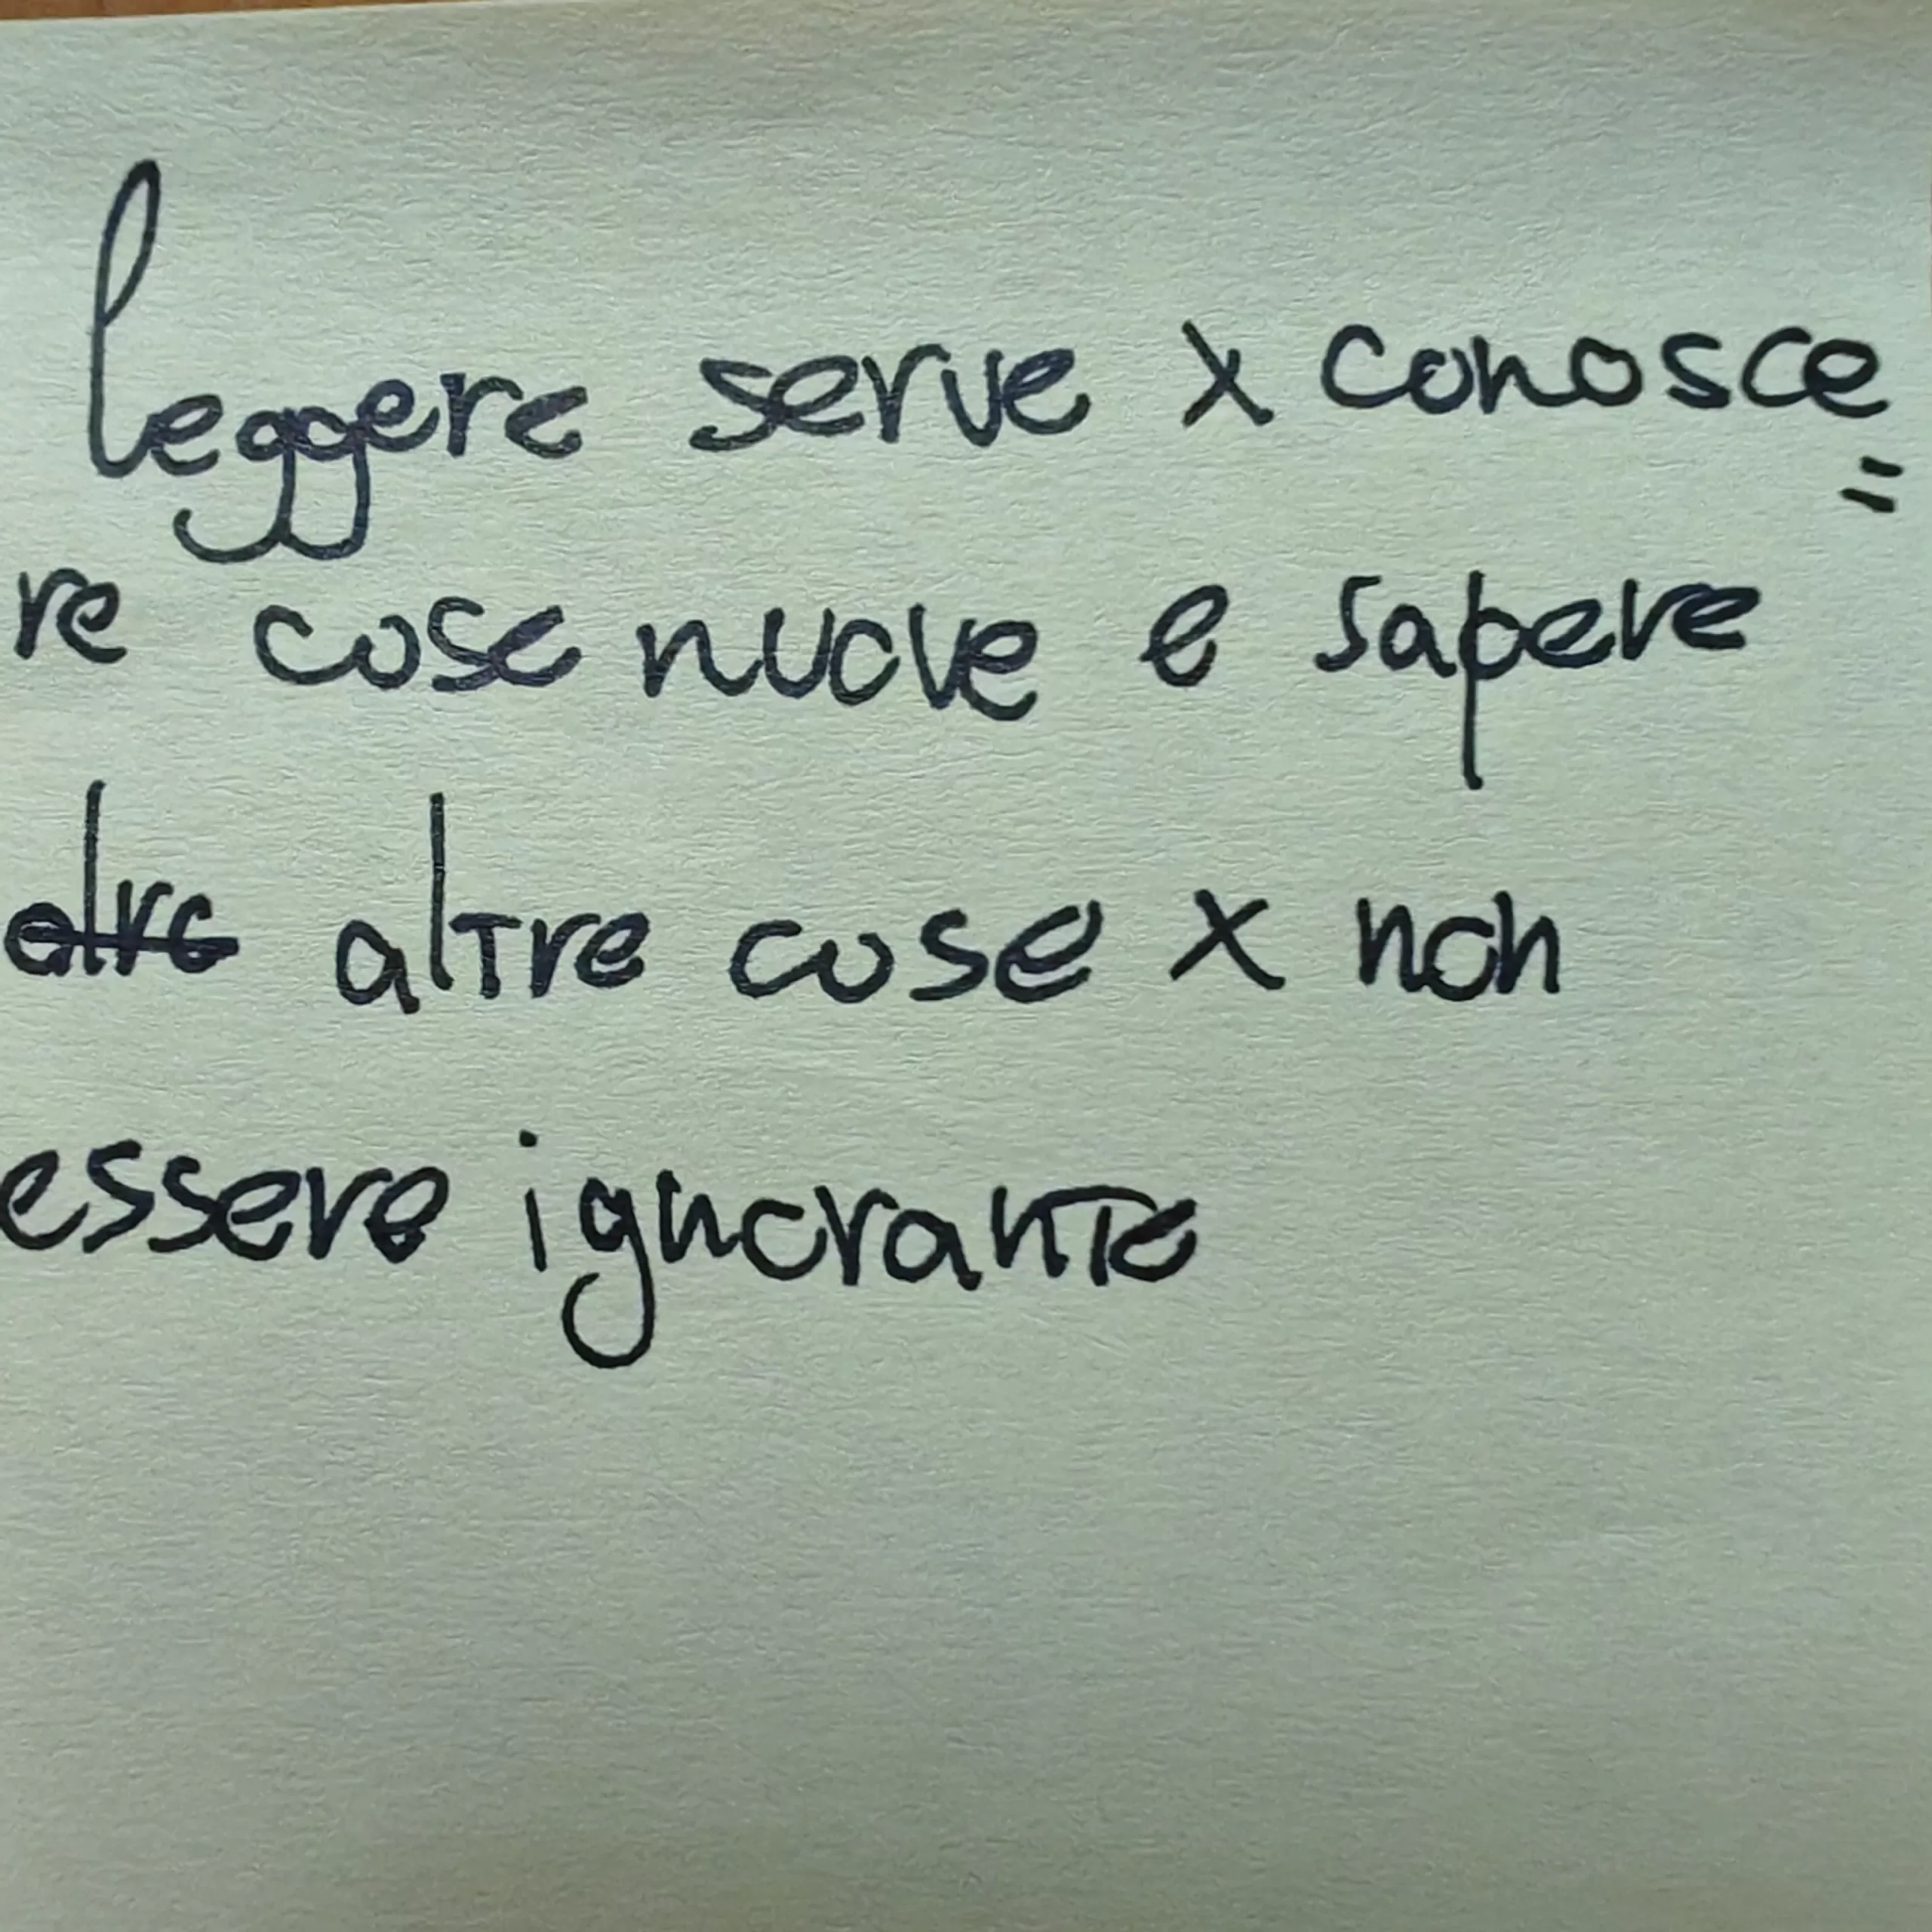 leggere serve x conosce=
re cose nuove e sapere
altre cose x non
essere ignorante